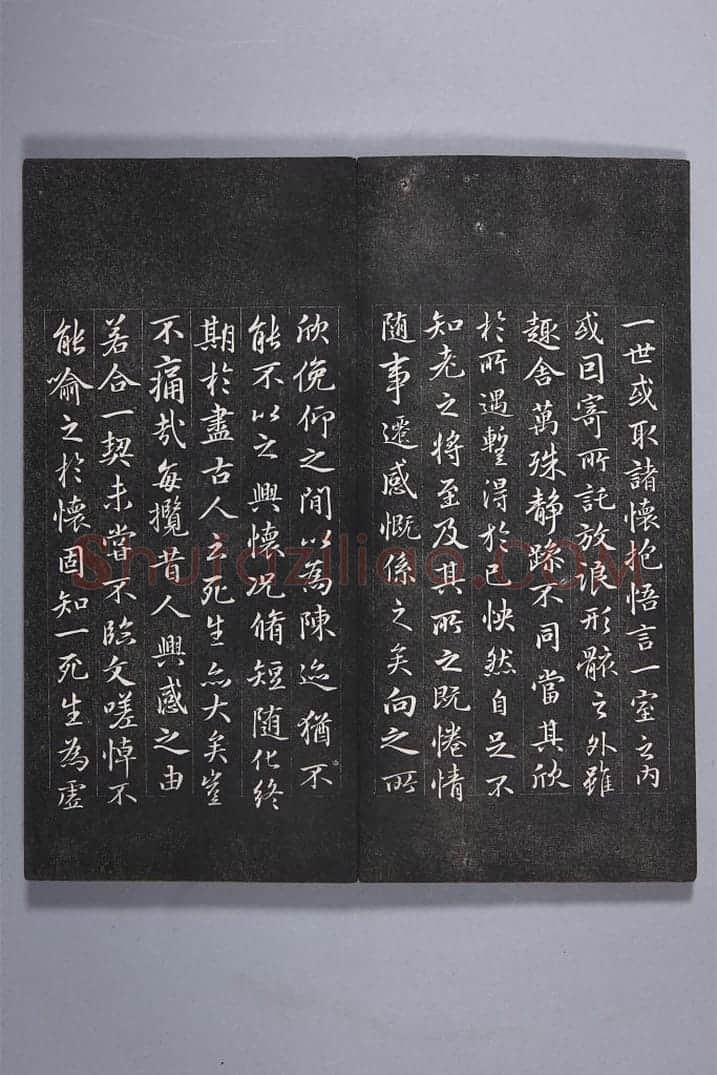 一世或取諸懷抱悟言一室之內
或因寄所託放浪形骸之外雖
趣舍萬殊静躁不同當其欣
於所遇蹔得於己怏然自足不
知老之將至及其所之既惓情
随事遷感慨係之矣向之所
欣俛仰之閒以爲陳迹猶不
能不以之興懷况脩短随化終
期於盡古人云死生亦大矣豈
不痛哉每攬昔人興感之由
若合一契未嘗不臨文嗟悼不
能喻之於懷固知一死生為虛
Shufaziliao.COM